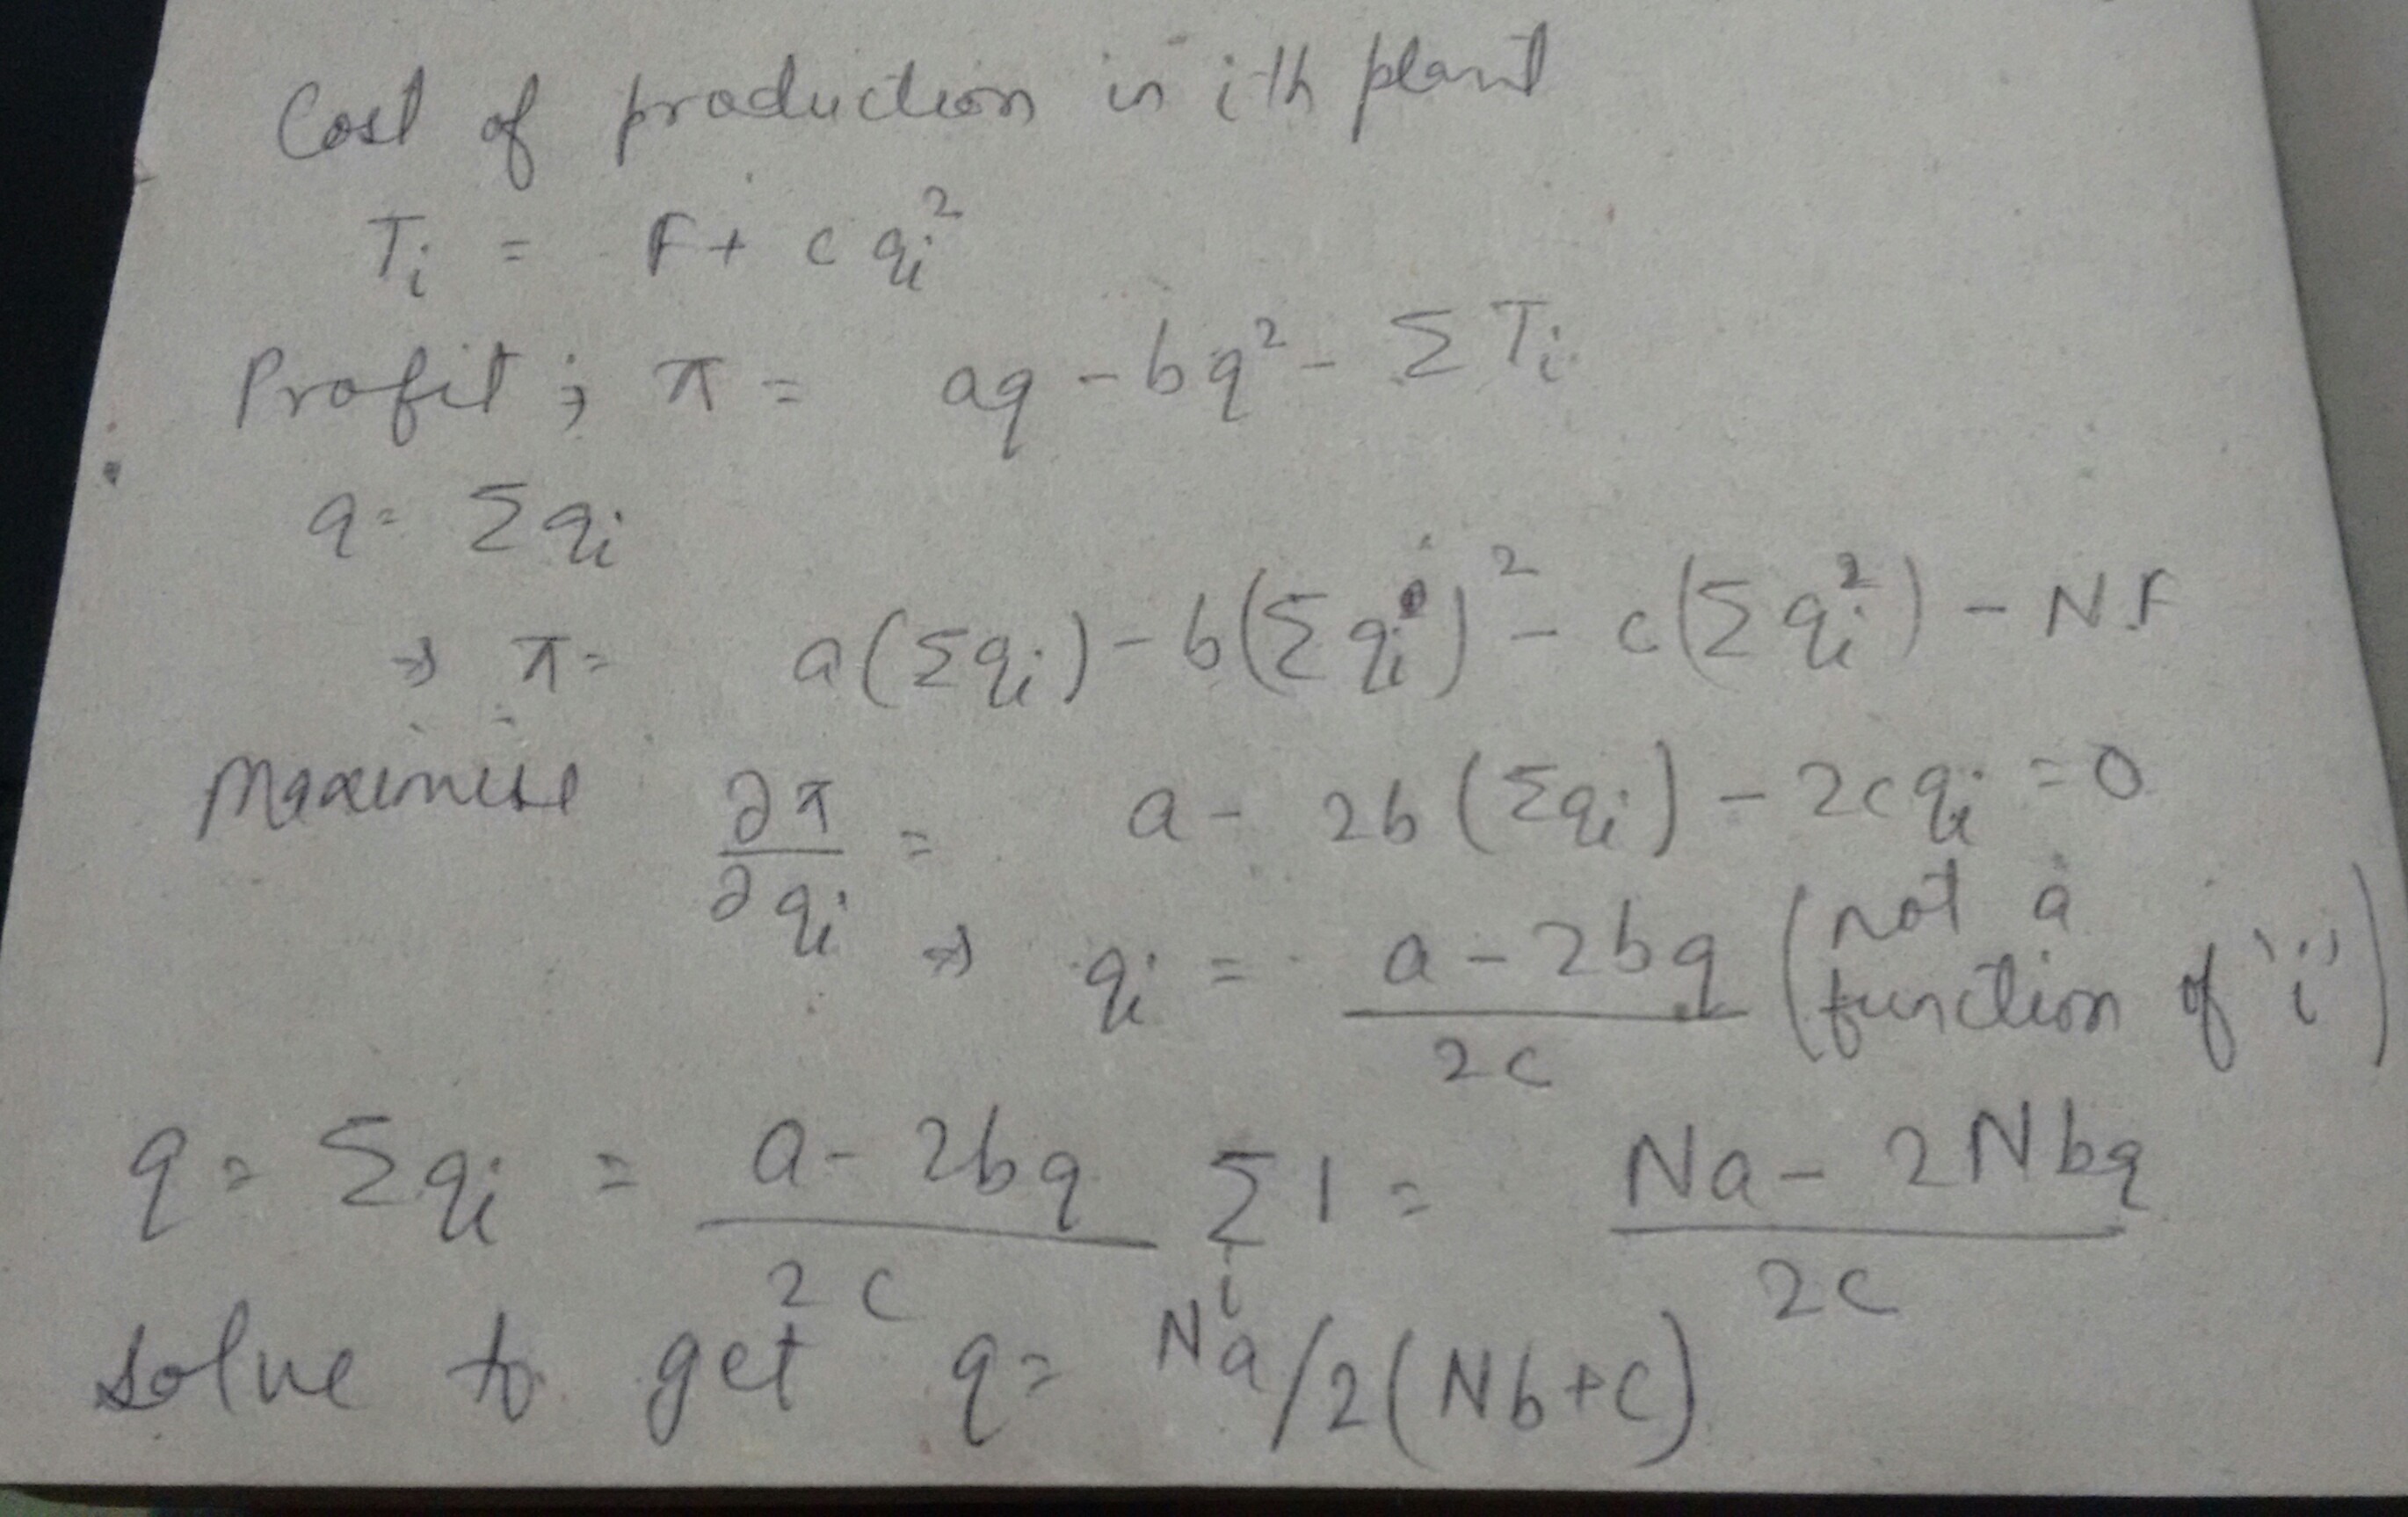 Cost of production in ith plant
Tᵢ = F + c qᵢ²
Profit ; π = aq - bq² - Σ Tᵢ
q = Σ qᵢ
⇒ π = a(Σqᵢ) - b(Σqᵢ)² - c(Σqᵢ²) - NF
Maximise ∂π/∂qᵢ = a - 2b(Σqᵢ) - 2cqᵢ = 0
⇒ qᵢ = (a - 2bq)/2c (not a function of 'i')
q = Σqᵢ = (a - 2bq)/2c Σᵢ 1 = (Na - 2Nbq)/2c
solve to get q = Na/2(Nb+c)